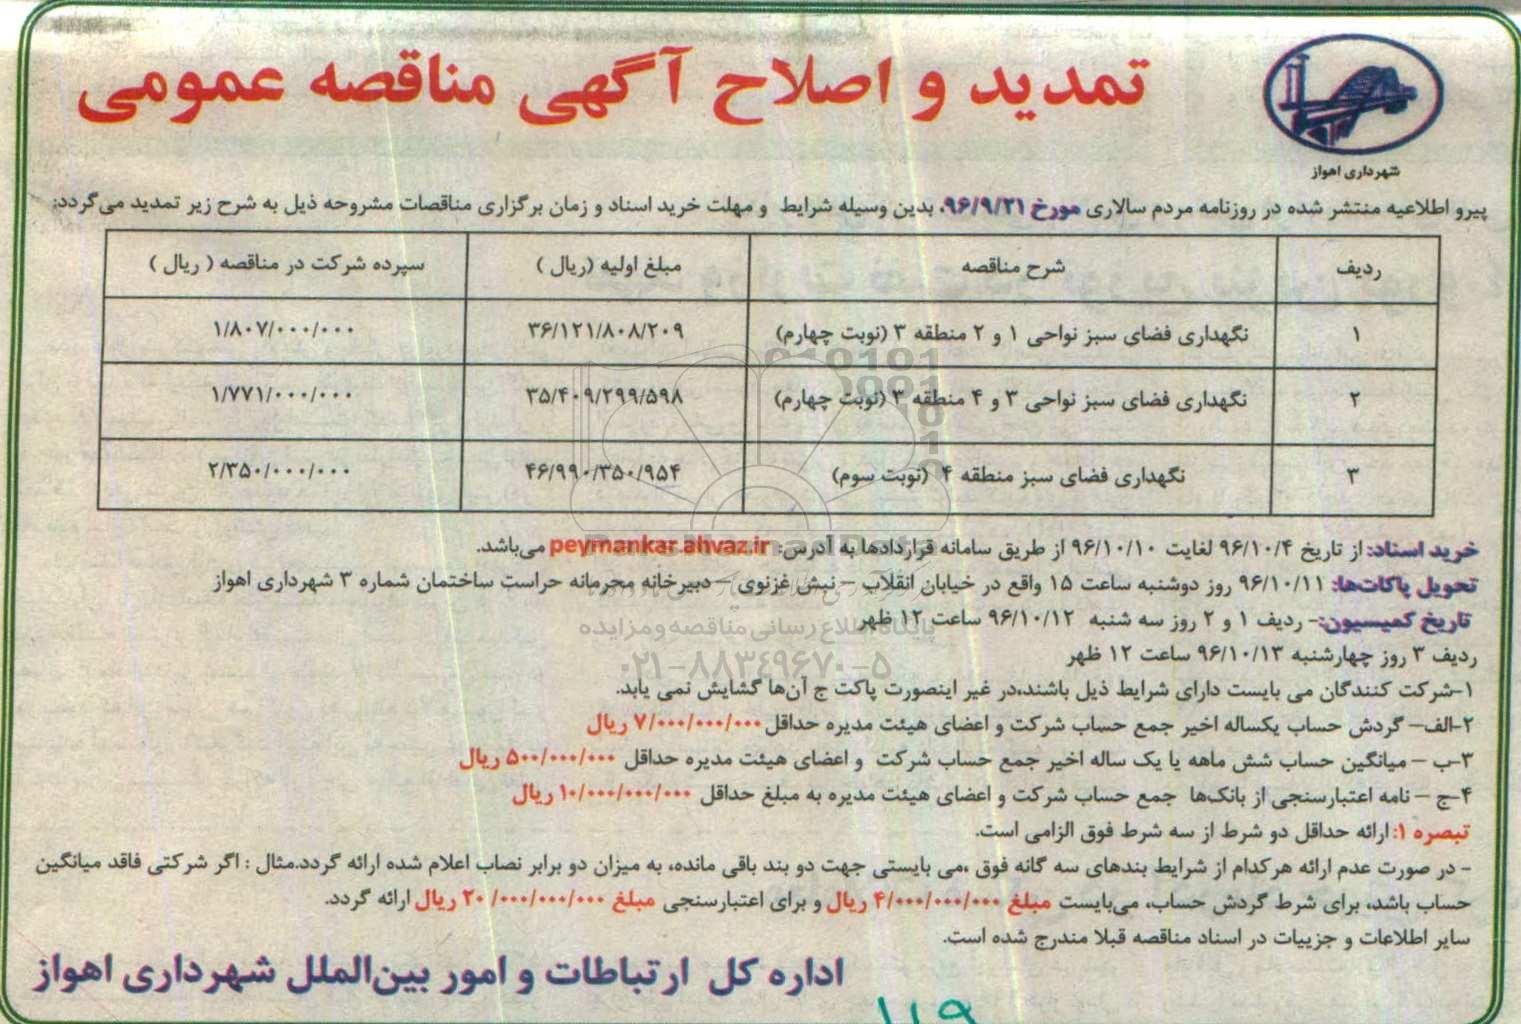 تمدید و اصلاح آگهی مناقصه عمومی
شهرداری اهواز
پیرو اطلاعیه منتشر شده در روزنامه مردم سالاری مورخ ۹۶/۹/۲۱، بدین وسیله شرایط و مهلت خرید اسناد و زمان برگزاری مناقصات مشروحه ذیل به شرح زیر تمدید می‌گردد:
ردیف شرح مناقصه مبلغ اولیه (ریال ) سپرده شرکت در مناقصه ( ریال )
۱ نگهداری فضای سبز نواحی ۱ و ۲ منطقه ۳ (نوبت چهارم) ۳۶/۱۲۱/۸۰۸/۲۰۹ ۱/۸۰۷/۰۰۰/۰۰۰
۲ نگهداری فضای سبز نواحی ۳ و ۴ منطقه ۳ (نوبت چهارم) ۳۵/۴۰۹/۲۹۹/۵۹۸ ۱/۷۷۱/۰۰۰/۰۰۰
۳ نگهداری فضای سبز منطقه ۴ (نوبت سوم) ۴۶/۹۹۰/۳۵۰/۹۵۴ ۲/۳۵۰/۰۰۰/۰۰۰
خرید اسناد: از تاریخ ۹۶/۱۰/۴ لغایت ۹۶/۱۰/۱۰ از طریق سامانه قراردادها به آدرس: peymankar.ahvaz.ir می‌باشد.
تحویل پاکات‌ها: ۹۶/۱۰/۱۱ روز دوشنبه ساعت ۱۵ واقع در خیابان انقلاب – نبش غزنوی – دبیرخانه محرمانه حراست ساختمان شماره ۳ شهرداری اهواز
تاریخ کمیسیون:- ردیف ۱ و ۲ روز سه شنبه ۹۶/۱۰/۱۲ ساعت ۱۲ ظهر
پایگاه اطلاع رسانی مناقصه و مزایده
ردیف ۳ روز چهارشنبه ۹۶/۱۰/۱۳ ساعت ۱۲ ظهر
۰۲۱-۸۸۳۴۹۶۷۰-۵
۱-شرکت کنندگان می بایست دارای شرایط ذیل باشند،در غیر اینصورت پاکت ج آن‌ها گشایش نمی یابد.
۲-الف– گردش حساب یکساله اخیر جمع حساب شرکت و اعضای هیئت مدیره حداقل ۷/۰۰۰/۰۰۰/۰۰۰ ریال
۳-ب – میانگین حساب شش ماهه یا یک ساله اخیر جمع حساب شرکت و اعضای هیئت مدیره حداقل ۵۰۰/۰۰۰/۰۰۰ ریال
۴-ج – نامه اعتبارسنجی از بانک‌ها جمع حساب شرکت و اعضای هیئت مدیره به مبلغ حداقل ۱۰/۰۰۰/۰۰۰/۰۰۰ ریال
تبصره ۱: ارائه حداقل دو شرط از سه شرط فوق الزامی است.
- در صورت عدم ارائه هرکدام از شرایط بندهای سه گانه فوق ،می بایستی جهت دو بند باقی مانده، به میزان دو برابر نصاب اعلام شده ارائه گردد.مثال : اگر شرکتی فاقد میانگین
حساب باشد، برای شرط گردش حساب، می‌بایست مبلغ ۴/۰۰۰/۰۰۰/۰۰۰ ریال و برای اعتبارسنجی مبلغ ۲۰/۰۰۰/۰۰۰/۰۰۰ ریال ارائه گردد.
سایر اطلاعات و جزییات در اسناد مناقصه قبلا مندرج شده است.
اداره کل ارتباطات و امور بین‌الملل شهرداری اهواز